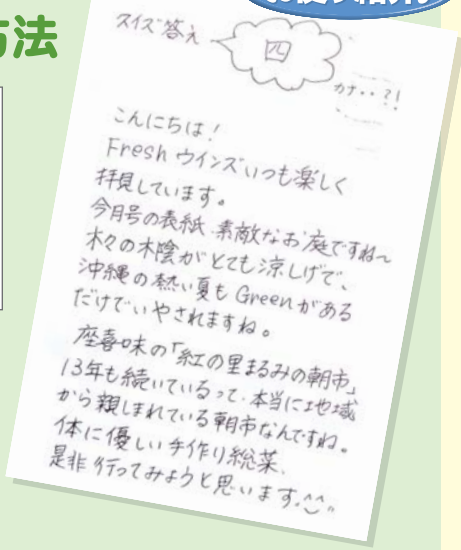 方法
お便り紹介
クイズ答え 四
カナ・・?!
こんにちは!
Fresh ウインズいつも楽しく
拝見しています。
今月号の表紙、素敵なお庭ですね〜
木々の木陰がとても涼しげで、
沖縄の熱い夏もGreenがある
だけでいやされますね。
座喜味の「紅の里まるみの朝市」
13年も続いているって、本当に地域
から親しまれている朝市なんですね。
体に優しい手作り総菜、
是非行ってみようと思います。^^"